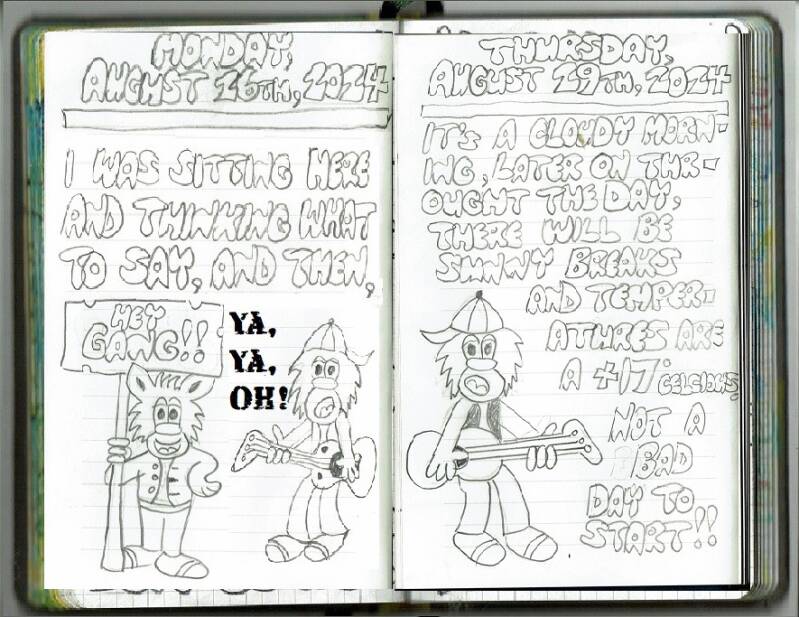 MONDAY,
AUGUST 26TH, 2024
I WAS SITTING HERE
AND THINKING WHAT
TO SAY, AND THEN,
HEY
GANG!!
YA,
YA,
OH!
THURSDAY,
AUGUST 29TH, 2024
IT'S A CLOUDY MORN-
ING, LATER ON THR-
OUGHT THE DAY,
THERE WILL BE
SUNNY BREAKS
AND TEMPER-
ATURES ARE
A +17° CELCIOUS,
NOT A
BAD
DAY TO
START!!